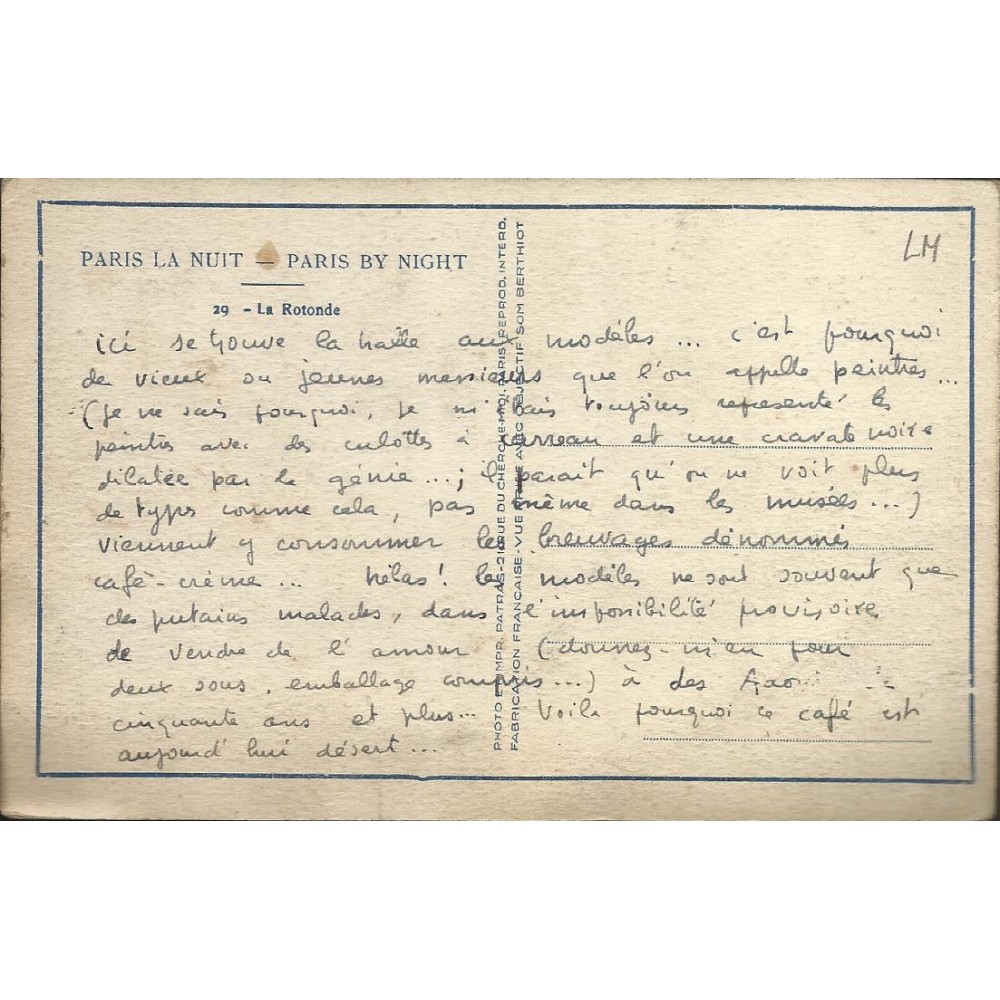 PARIS LA NUIT — PARIS BY NIGHT
29 - La Rotonde
LM
ici se trouve la halle aux modèles... c'est pourquoi
de vieux ou jeunes messieurs que l'on appelle peintres...
(je ne sais pourquoi, je m'étais toujours représenté les
peintres avec des culottes à carreau et une cravate noire
dilatée par le génie...; il parait qu'on ne voit plus
de types comme cela, pas même dans les musées...)
viennent y consommer les breuvages dénommés
café-crème... hélas! les modèles ne sont souvent que
des putains malades, dans l'impossibilité provisoire
de vendre de l'amour (donnez-m'en pour
deux sous, emballage compris...) à des
cinquante ans et plus... Voilà pourquoi ce café est
aujourd'hui désert...
PHOTO ET IMPR. PATRAS-21 RUE DU CHERCHE-MIDI, PARIS, REPROD. INTERD.
FABRICATION FRANÇAISE-VUE PRISE AVEC OBJECTIF SOM BERTHIOT